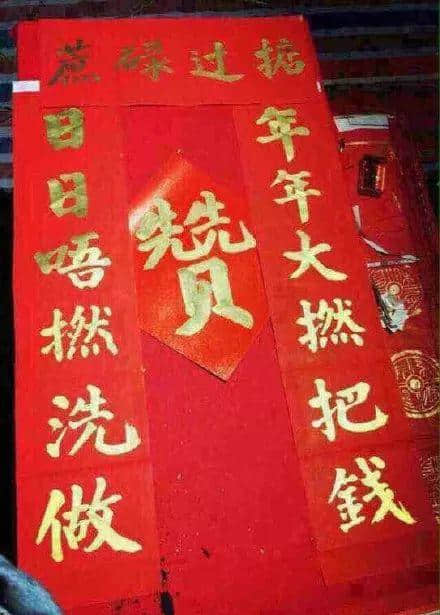 掂过碌蔗
年年大撚把錢
赞
日日唔撚洗做